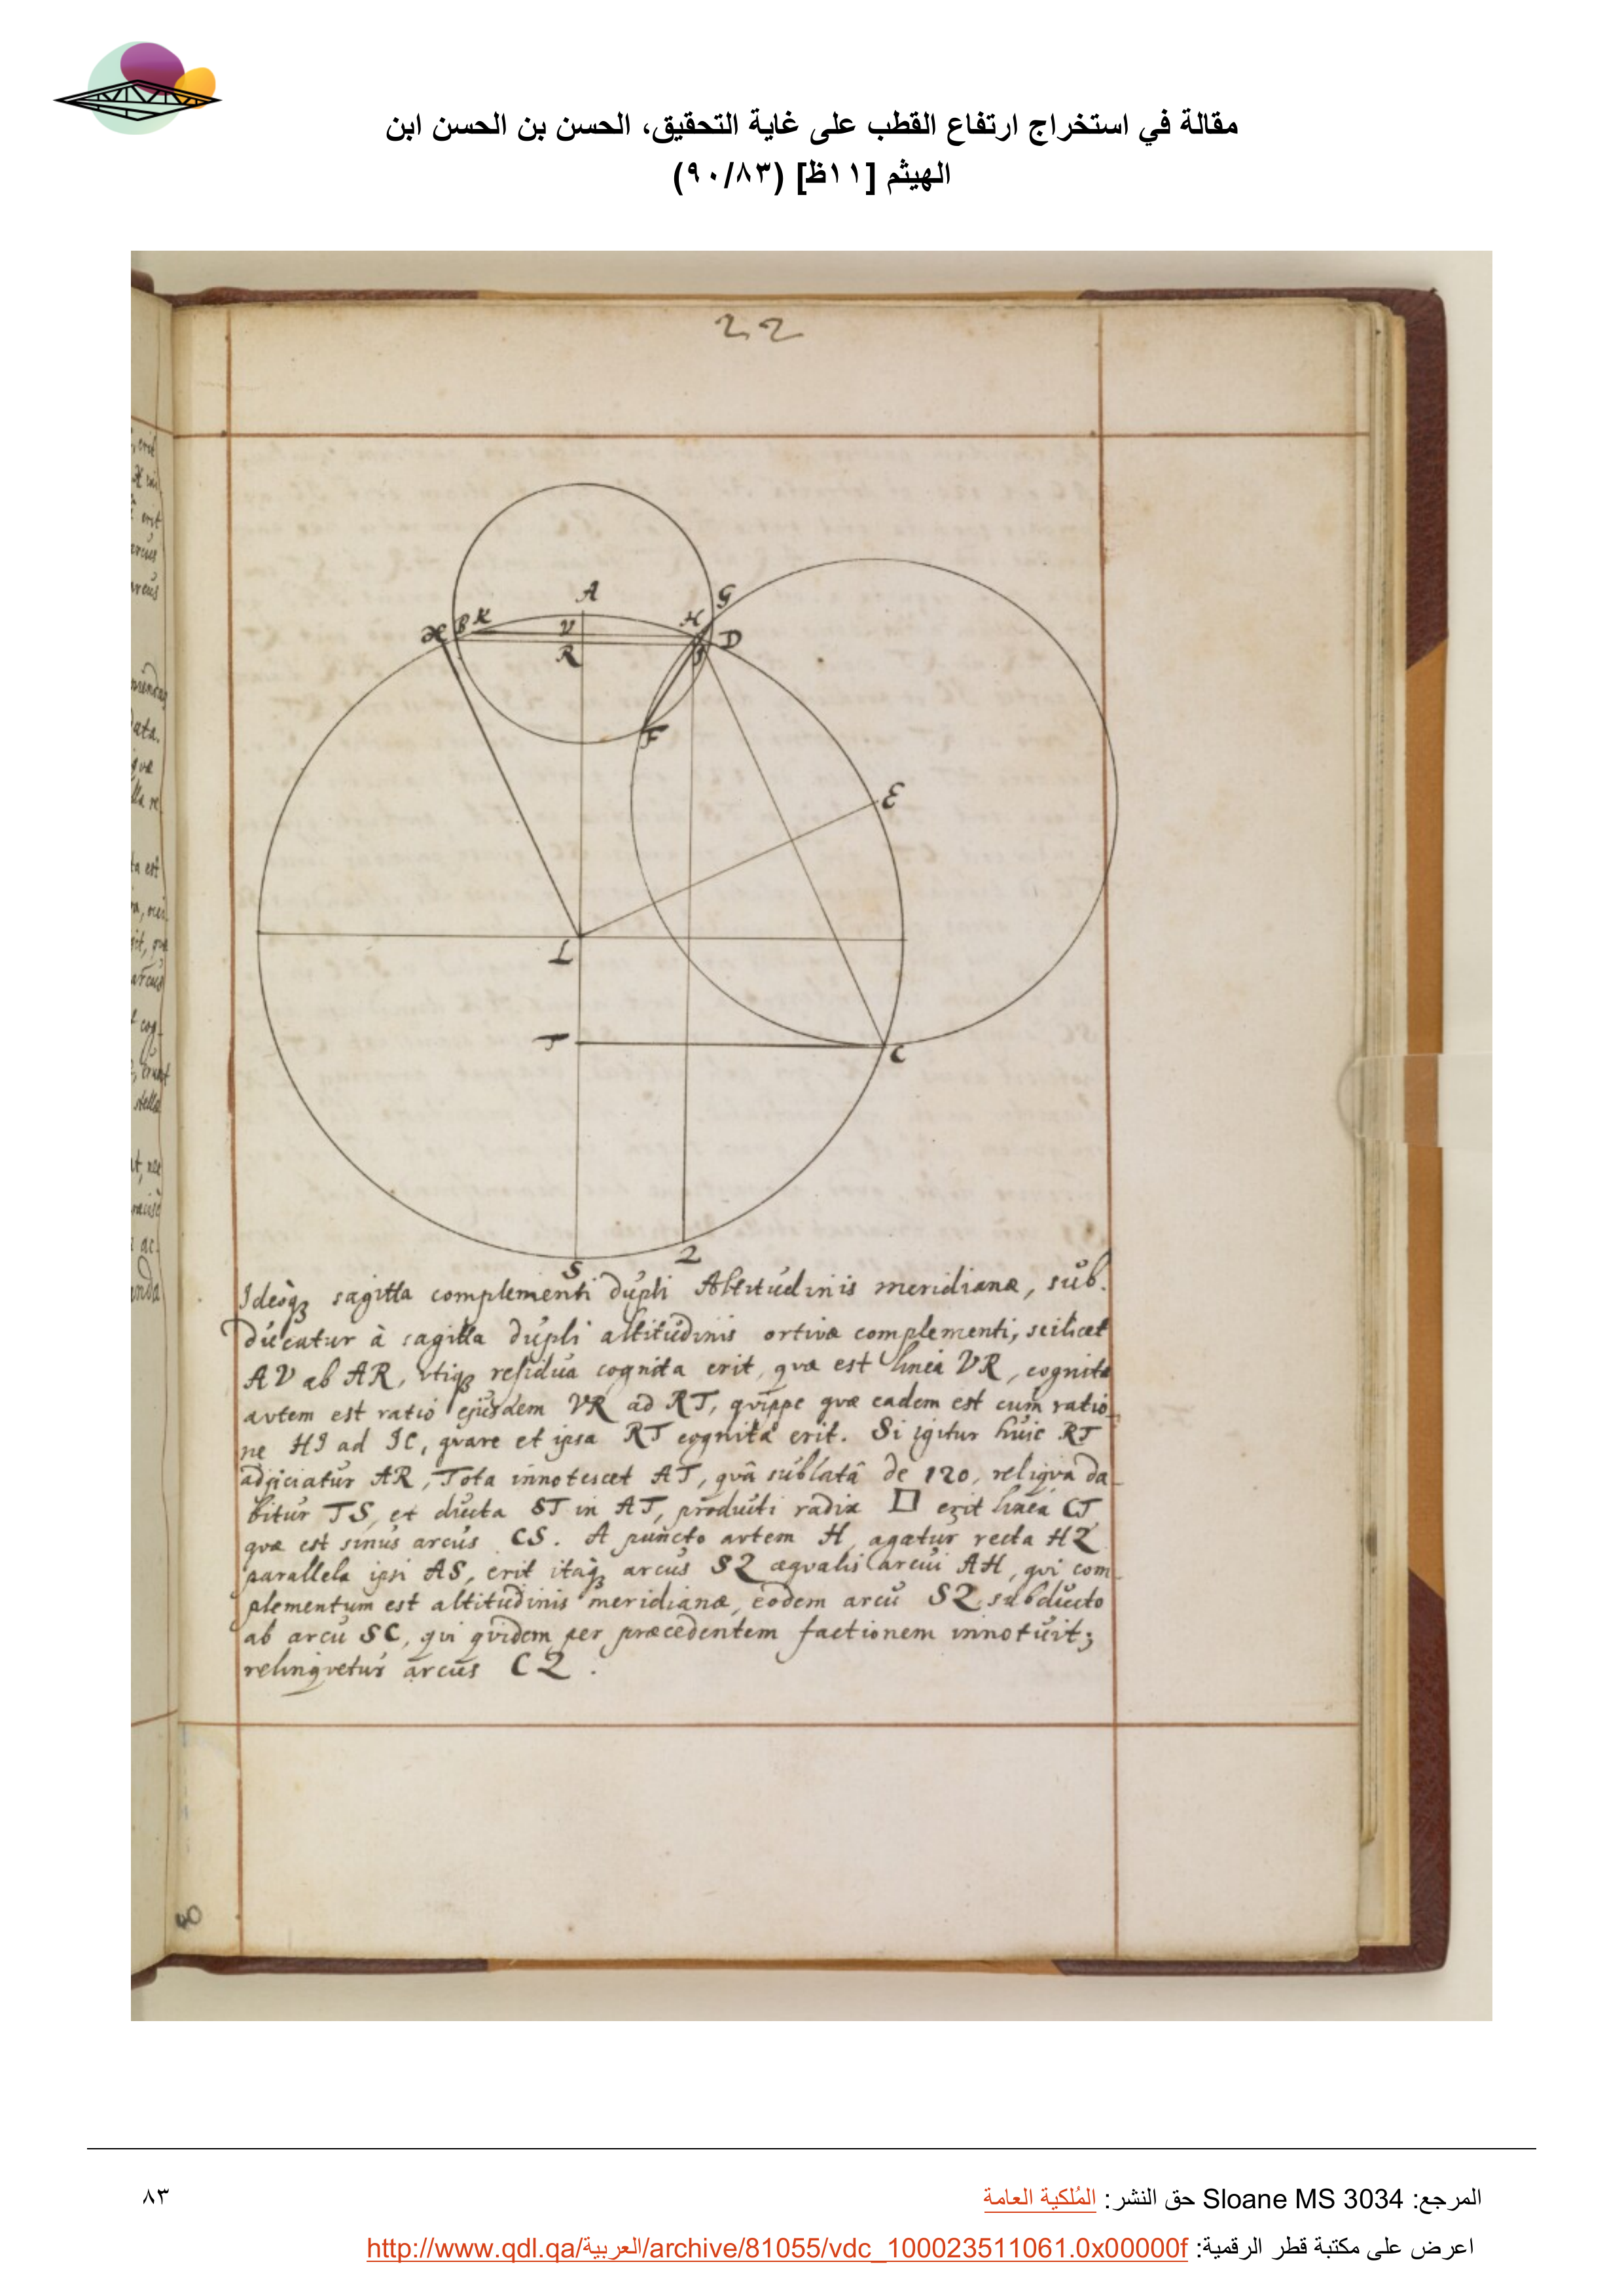 مقالة في استخراج ارتفاع القطب على غاية التحقيق، الحسن بن الحسن ابن
الهيثم [١١ظ] (٩٠/٨٣)
22
A
G
B K
H
V
D
R
F
E
L
T
C
S
2
Ideoq́ꝫ sagitta complementi dupli Altitudinis meridianæ, sub-
ducatur à sagitta dupli altitudinis ortivæ complementi, scilicet
AV ab AR, utiqꝫ residua cognita erit, quæ est linea VR, cognita
autem est ratio ejusdem VR ad RT, quippe quæ eadem est cum ratio-
ne HI ad IC, quare et ipsa RT cognita erit. Si igitur huic RT
adjiciatur AR, Tota innotescet AT, quâ sublatâ de 120, reliqua da-
bitur TS, et ducta ST in AT, producti radix □ erit linea CT
quæ est sinus arcus CS. A puncto autem H agatur recta H2
parallela ipsi AS, erit itaq́ꝫ arcus S2 æqualis arcui AH, qui com-
plementum est altitudinis meridianæ, eodem arcu S2 subducto
ab arcu SC, qui quidem per præcedentem factionem innotuit;
relinquetur arcus C2.
المرجع: Sloane MS 3034 حق النشر: المُلكية العامة
٨٣
اعرض على مكتبة قطر الرقمية: http://www.qdl.qa/العربية/archive/81055/vdc_100023511061.0x00000f